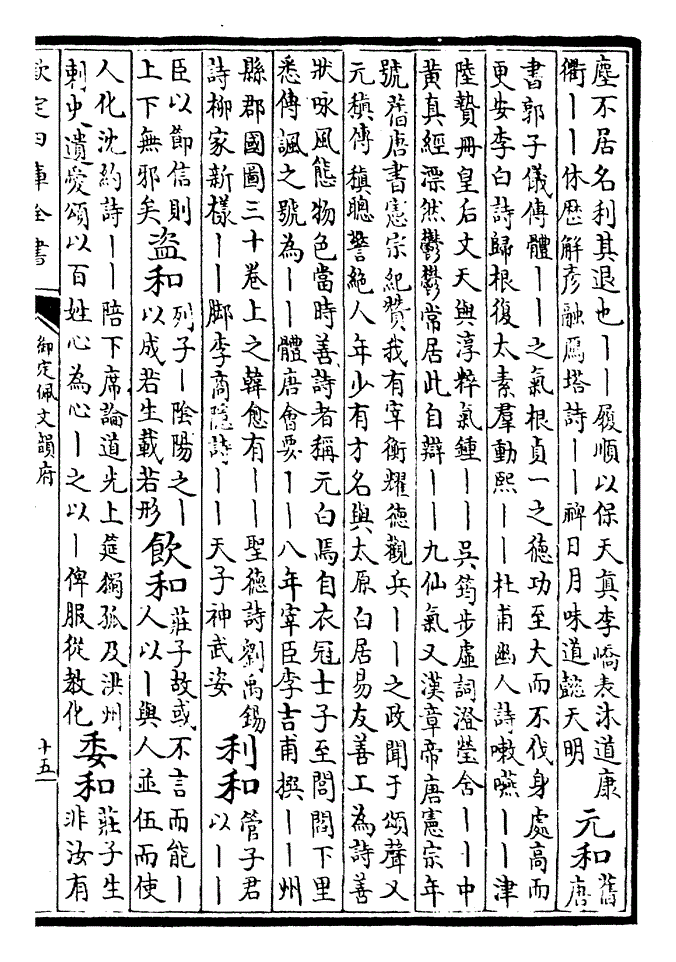 塵不居名利其退也丨丨履順以保天真李嶠表沐道康
衢丨丨休歴解彦融鴈塔詩丨丨裨日月味道懿天明
元和
舊
唐
書郭子儀傳體丨丨之氣根貞一之徳功至大而不伐身處高而
更安李白詩歸根復太素羣動熙丨丨杜甫幽人詩嗽嚥丨丨津
陸贄冊皇后文天與淳粹氣鍾丨丨吳筠步虛詞澄瑩含丨丨中
黄真經漂然鬱鬱常居此自辯丨丨九仙氣又漢章帝唐憲宗年
號舊唐書憲宗紀贊我有宰衡耀徳觀兵丨丨之政聞于頌聲又
元稹傳稹聰警絶人年少有才名與太原白居易友善工為詩善
狀咏風態物色當時善詩者稱元白焉自衣冠士子至閭閻下里
悉傳諷之號為丨丨體唐會要丨丨八年宰臣李吉甫撰丨丨州
縣郡國圖三十卷上之韓愈有丨丨聖徳詩劉禹錫
詩柳家新様丨丨脚李商隱詩丨丨天子神武姿
利和
管子君
以丨丨
臣以節信則
上下無邪矣
盗和
列子丨陰陽之丨
以成若生載若形
飲和
莊子故或不言而能丨
人以丨與人並伍而使
人化沈約詩丨丨陪下席論道光上筵獨孤及洪州
刺史遺愛頌以百姓心為心丨之以丨俾服從教化
委和
莊子生
非汝有
欽定四庫全書
御定佩文韻府
十五